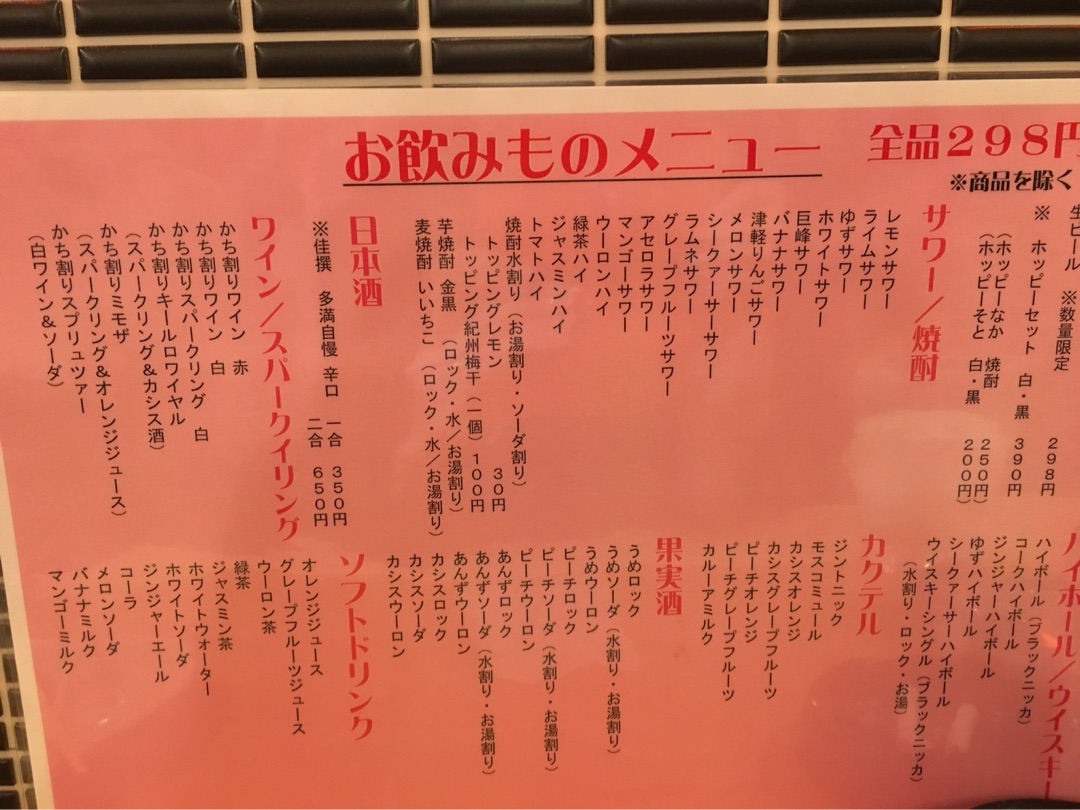 お飲みものメニュー　全品２９８円
※商品を除く
生ビール　※数量限定　２９８円
※　ホッピーセット　白・黒　３９０円
（ホッピーなか　焼酎　２５０円）
（ホッピーそと　白・黒　２００円）
サワー／焼酎
レモンサワー
ライムサワー
ゆずサワー
ホワイトサワー
巨峰サワー
バナナサワー
津軽りんごサワー
メロンサワー
シークァーサーサワー
ラムネサワー
グレープフルーツサワー
アセロラサワー
マンゴーサワー
ウーロンハイ
緑茶ハイ
ジャスミンハイ
トマトハイ
焼酎水割り（お湯割り・ソーダ割り）
トッピングレモン　３０円
トッピング紀州梅干（一個）１００円
芋焼酎　金黒　（ロック・水／お湯割り）
麦焼酎　いいちこ　（ロック・水／お湯割り）
日本酒
※佳撰　多満自慢　辛口　一合　３５０円
二合　６５０円
ワイン／スパークイリング
かち割りワイン　赤
かち割りワイン　白
かち割りスパークリング　白
かち割りキールロワイヤル
（スパークリング＆カシス酒）
かち割りミモザ
（スパークリング＆オレンジジュース）
かち割りスプリュツァー
（白ワイン＆ソーダ）
ハイボール／ウイスキー
ハイボール（ブラックニッカ）
コークハイボール
ジンジャーハイボール
ゆずハイボール
シークァーサーハイボール
ウイスキーシングル（ブラックニッカ）
（水割り・ロック・お湯）
カクテル
ジントニック
モスコミュール
カシスオレンジ
カシスグレープフルーツ
ピーチオレンジ
ピーチグレープフルーツ
カルーアミルク
果実酒
うめロック
うめソーダ（水割り・お湯割り）
うめウーロン
ピーチロック
ピーチソーダ（水割り・お湯割り）
ピーチウーロン
あんずロック
あんずソーダ（水割り・お湯割り）
あんずウーロン
カシスロック
カシスソーダ
カシスウーロン
ソフトドリンク
オレンジジュース
グレープフルーツジュース
ウーロン茶
緑茶
ジャスミン茶
ホワイトウォーター
ホワイトソーダ
ジンジャーエール
コーラ
メロンソーダ
バナナミルク
マンゴーミルク